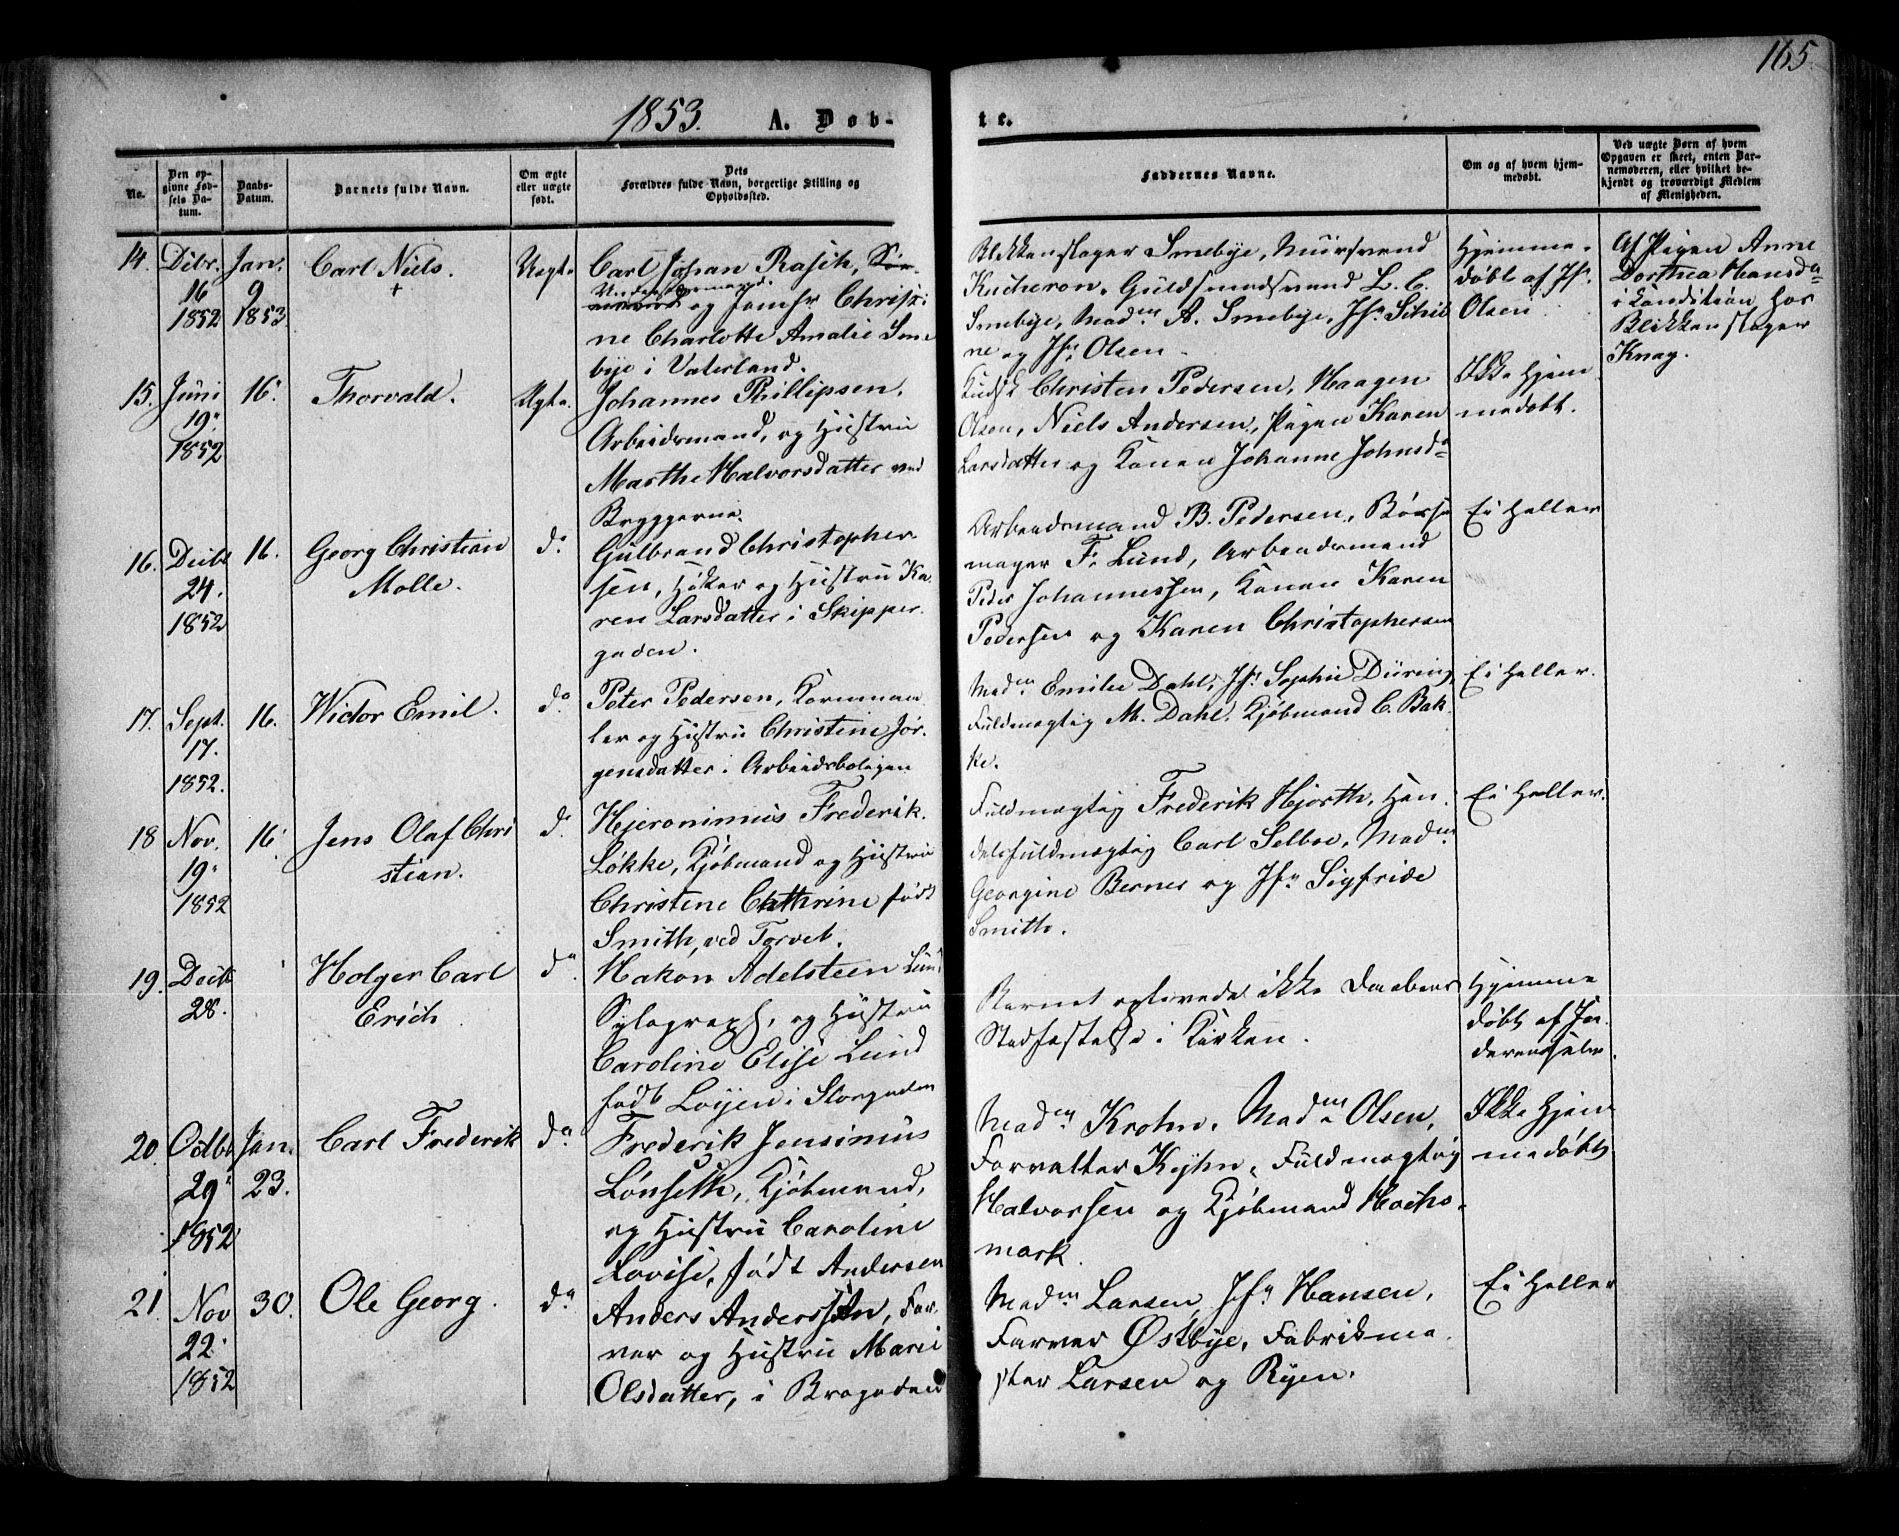 165.
1853. A. Døb-
te.
No.
Den op-
givne Fød-
sels Da-
tum.
Daabs-
Datum.
Barnets fulde Navn.
Om ægte
eller uægte
født.
Dets
Forældres fulde Navn, borgerlige Stilling og
Opholdssted.
Faddernes Navne.
Om og af hvem hjem-
medøbt.
Ved uægte Børn af hvem
Opgaven er skeet, enten Bar-
nemoderen, eller hvilket be-
kjendt og troværdigt Medlem
af Menigheden.
14.
Debr.
16
1852
Jan.
9
1853
Carl Niels.
+
Uægte
Carl Johan Rasch,
og Jomfr Christi
ne Charlotte Amalie Sme
bye i Vaterland.
Blikkenslager Smebye, Muursvend
Kucheron, Guldsmedsvend L. C.
Smebye, Madm. A. Smebye, Jfr Schie
ne og Jfr Olsen.
Hjemme-
døbt af Jfr
Olsen.
Af Pigen Anne
Dorthea Hansda
i Condition hos
Blikkenslager
Knag.
15.
Juni
19.
1852
16.
Thorvald.
Ægte.
Johannes Phillipsen,
Arbeidsmand, og Hustru
Marthe Halvorsdatter ved
Bryggerne.
Kudsk Christen Pedersen, Haagen
Olsen, Niels Andersen, Pigen Karen
Larsdatter og Konen Johanne Johnsda
Ikke hjem
medøbt.
16.
Decbr
24.
1852
16.
Georg Christian
Molle.
do
Gulbrand Christopher-
sen, Høker og Hustru Ka-
ren Larsdatter i Skipper-
gaden.
Arbeidsmand B. Pedersen, Børse
mager F. Lund, Arbeidsmand
Peder Johannessen, Konen Karen
Pedersen og Karen Christophersen
Ei heller
17.
Sept.
17.
1852.
16.
Wictor Emil.
do
Peter Pedersen, Kornmaa
ler og Hustru Christine Jør-
gensdatter i Arbeidsboligen
Madm Emilie Dahl, Jfr Sophie Düring
Fuldmægtig M. Dahl, Kjøbmand C. Bak-
ke.
Ei heller.
18
Nov.
19
1852
16.
Jens Olaf Chri
stian.
do
Hjeronimus Frederik
Løkke, Kjøbmand og Hustru
Christine Cathrine født
Smith, ved Torvet.
Fuldmægtig Frederik Hjorth, Han-
delsfuldmægtig Carl Selboe, Madm
Georgine Berner og Jfr Sigfride
Smith.
Ei heller.
19.
Decbr
28.
Holger Carl
Erich
do
Hakon Adelsteen Lund
Xylograph, og Hustru
Caroline Elise Lund
født Løyen i Storgaden
Barnet oplevede ikke Daabens
Stadfæstelse i Kirken.
Hjemme
døbt af Jor
demoder
20.
Octbr
29
1852
Jan.
23.
Carl Frederik
do
Frederik Jensinius
Lønseth, Kjøbmand,
og Hustru Caroline
Lovise, født Andersen
Madm Krohn, Madm Olsen,
Forvalter Kyhn, Fuldmægtig
Halvorsen og Kjøbmand Hochs-
mark
Ikke hjem
medøbt
21
Nov
22.
1852
30.
Ole Georg.
do
Anders Anderssen, Far-
ver og Hustru Marie
Olsdatter, i Brogaden
Madm Larsen, Jfr Hansen,
Farver Østbye, Fabrikme-
ster Larsen og Ryen.
Ei heller